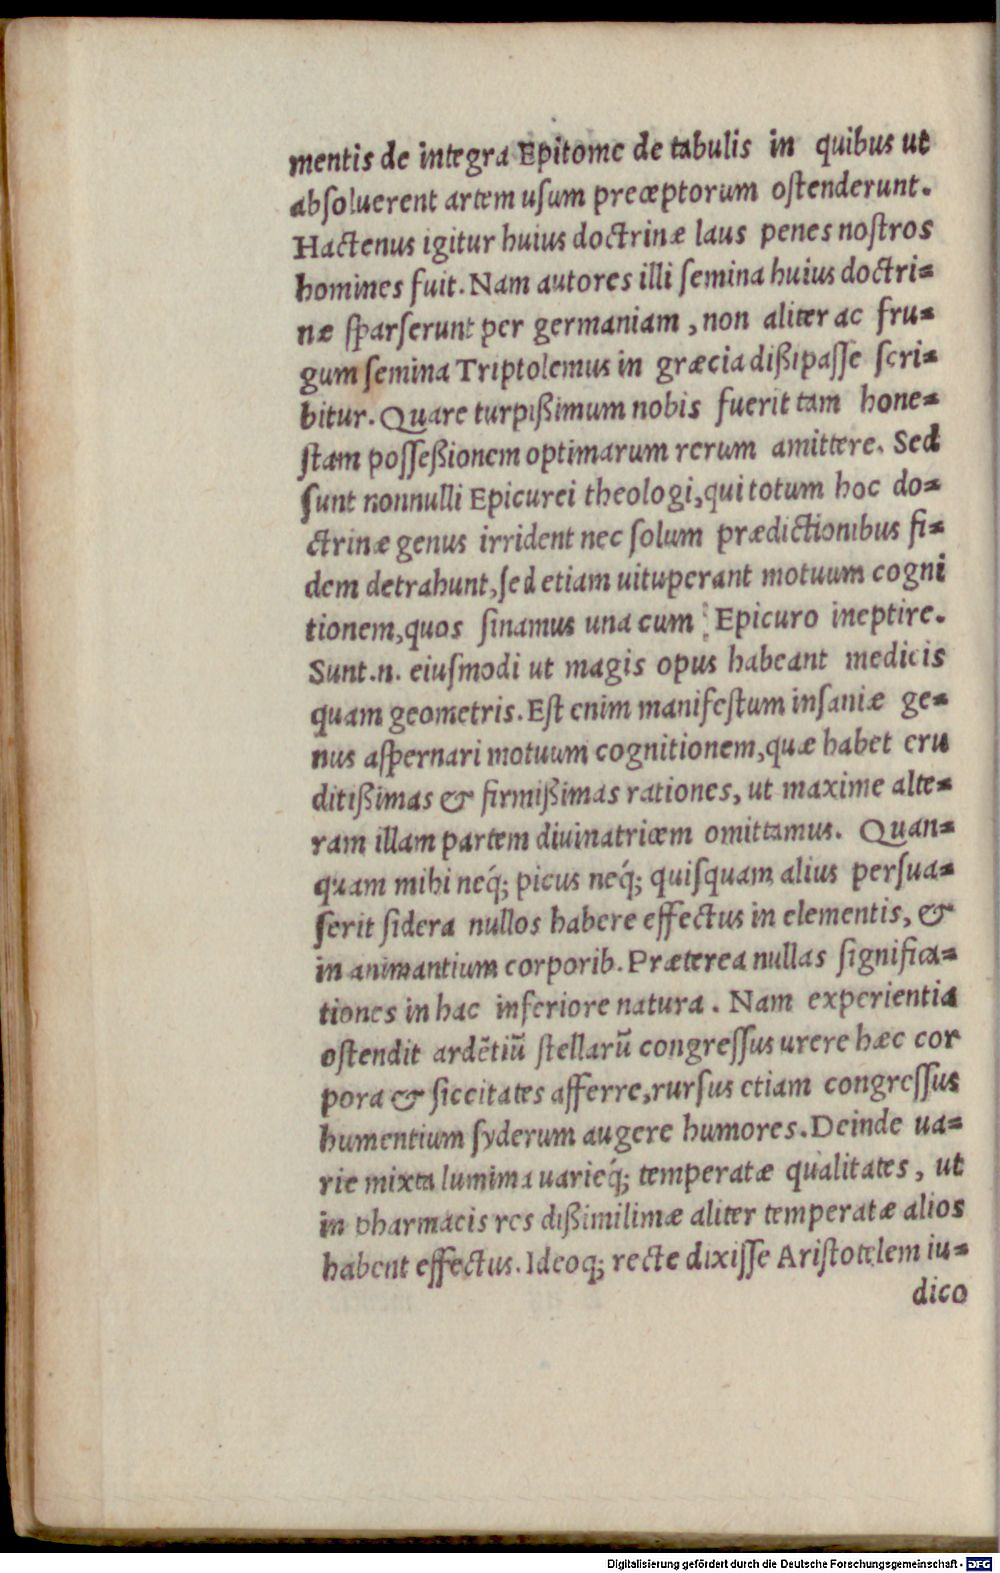 mentis de integra Epitome de tabulis in quibus ut
absoluerent artem usum præceptorum ostenderunt.
Hactenus igitur huius doctrinæ laus penes nostros
homines fuit. Nam autores illi semina huius doctri-
næ sparserunt per germaniam, non aliter ac fru-
gum semina Triptolemus in græcia dißipasse scri-
bitur. Quare turpißimum nobis fuerit tam hone-
stam posseßionem optimarum rerum amittere. Sed
sunt nonnulli Epicurei theologi, qui totum hoc do-
ctrinæ genus irrident nec solum prædictionibus fi-
dem detrahunt, sed etiam uituperant motuum cogni
tionem, quos sinamus una cum Epicuro ineptire.
Sunt.n. eiusmodi ut magis opus habeant medicis
quam geometris. Est enim manifestum insaniæ ge-
nus aspernari motuum cognitionem, quæ habet eru
ditißimas & firmißimas rationes, ut maxime alte-
ram illam partem diuinatricem omittamus. Quan-
quam mihi neq́; picus neq́; quisquam alius persua-
serit sidera nullos habere effectus in elementis, &
in animantium corporib. Præterea nullas significa-
tiones in hac inferiore natura. Nam experientia
ostendit ardẽtiũ stellarũ congressus urere hæc cor
pora & siccitates afferre, rursus etiam congressus
humentium syderum augere humores. Deinde ua-
rie mixta lumima uarieq́; temperatæ qualitates, ut
in pharmacis res dißimilimæ aliter temperatæ alios
habent effectus. Ideoq; recte dixisse Aristotelem iu-
dico
Digitalisierung gefördert durch die Deutsche Forschungsgemeinschaft - DFG